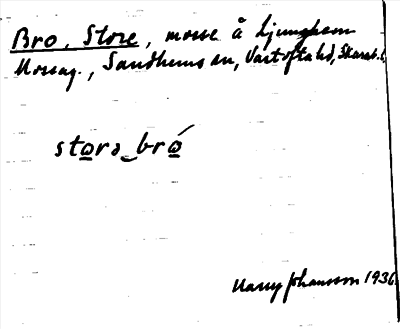 Bro, Store, mosse å Ljunghem
Mossag., Sandhems sn, Vartofta hd, Skarab. l.
stora‿bro
Harry Johansson 1936.